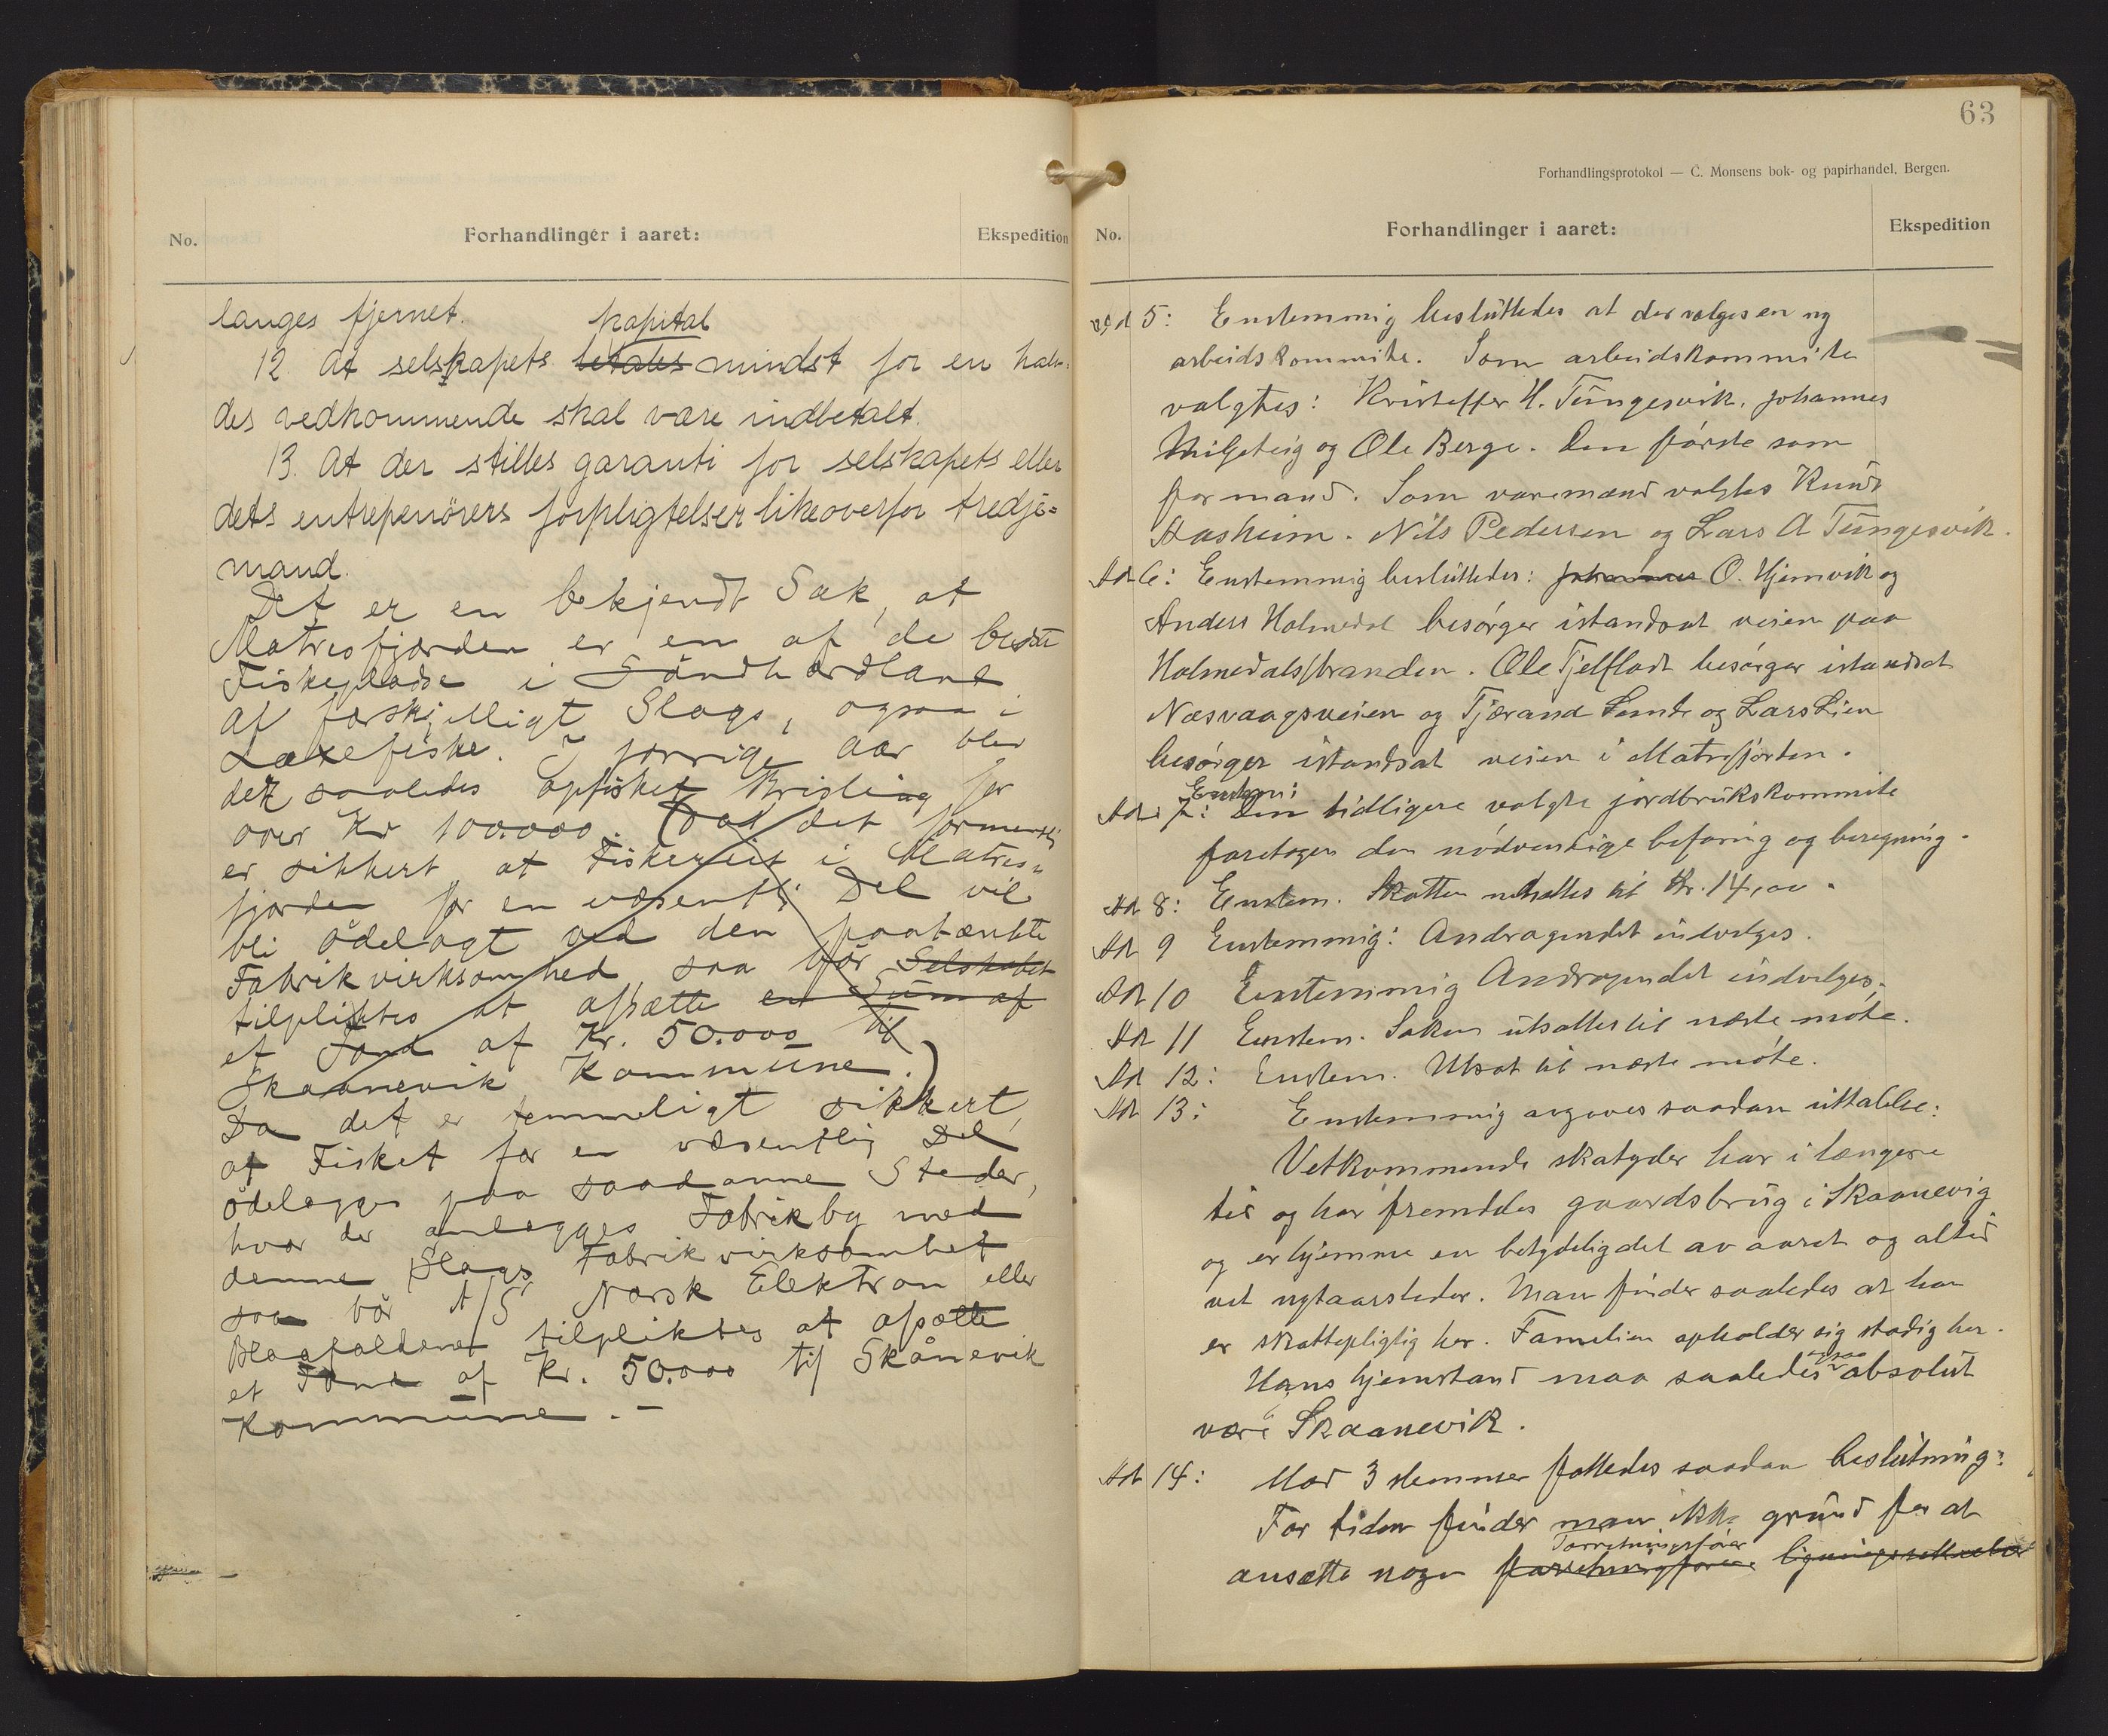 No.
Forhandlinger i aaret:
Ekspedition
langes fjernet.
kapital
12. At selskapets betales mindst for en halv-
des vedkommende skal være indbetalt.
13. At der stilles garanti for selskapets eller
dets entrepenörers forpligtelser likeoverfor tredje=
mand.
Det er en bekjendt Sak, at
Matresfjorden er en af de bedste
Fiskepladse i Söndhordland
af forskjelligt Slags, ogsaa i
Laxefiske. I forrige Aar blev
der saaledes opfisket Brisling for
over Kr 100.000. (Da det formentlig
er sikkert, at Fiskeriet i Matres-
fjorden for en væsentlig Del vil
bli ödelagt ved den paatænkte
Fabrikvirksomhed saa bör Selskabet
tilpliktes at afsætte en Sum af
et Fond af Kr. 50.000 til
Skaanevik Kommune.)
Da det er temmeligt sikkert,
at Fisket for en væsentlig Del
ödelægges paa saadanne Steder,
hvor der anlægges Fabrikby med
denne Slags Fabrikvirksomhet
saa bör A/S Norsk Elektron eller
Blaafaldene tilpliktes at afsætte
et Fond af Kr. 50.000 til Skånevik
Kommune. —
63
Forhandlingsprotokol — C. Monsens bok- og papirhandel, Bergen.
No.
Forhandlinger i aaret:
Ekspedition
Ad 5: Enstemmig besluttedes at der vælges en ny
arbeidskommite. Som arbeidskommite
valgtes: Kristoffer H. Tungesvik, Johannes
Miljeteig og Ole Berge. Den første som
formand. Som varamænd valgtes Knut
Aasheim. Nils Pedersen og Lars A Tungesvik.
Ad 6: Enstemmig besluttedes: Johannes O. Hjemvik og
Anders Holmedal besørger istandsat veien paa
Holmedalsstranden. Ole Fjelland besørger istandsat
Næsvaagsveien og Tjærand Sunde og Lars Lien
besørger istandsat veien i Matrefjorden.
Enstem:
Ad 7: Den tidligere valgte jordbrukskommite
foretager den nødvendige befaring og beregning.
Ad 8: Enstem. Skatten nedsættes til Kr. 14,00.
Ad 9 Enstemmig: Andragendet indvilges.
Ad 10 Enstemmig Andragendet indvilges.
Ad 11 Enstem. Saken utsættes til næste møte.
Ad 12: Enstem. Utsat til næste møte.
Ad 13: Enstemmig avgaves saadan uttalelse:
Vetkommende skatyder har i længere
tid og har fremdeles gaardsbrug i Skaanevig
og er hjemme en betydelig del av aaret og altid
ved nytaarstider. Man finder saaledes at han
er skattepligtig her. Familien opholder sig stadig her.
ogsaa
Hans hjemstand maa saaledes absolut
være Skaanevik.
Ad 14: Mod 3 stemmer fattedes saadan beslutning:
For tiden finder man ikke grund for at
Forretningsfører
ansætte nogen forretningsfører ligningssekretær